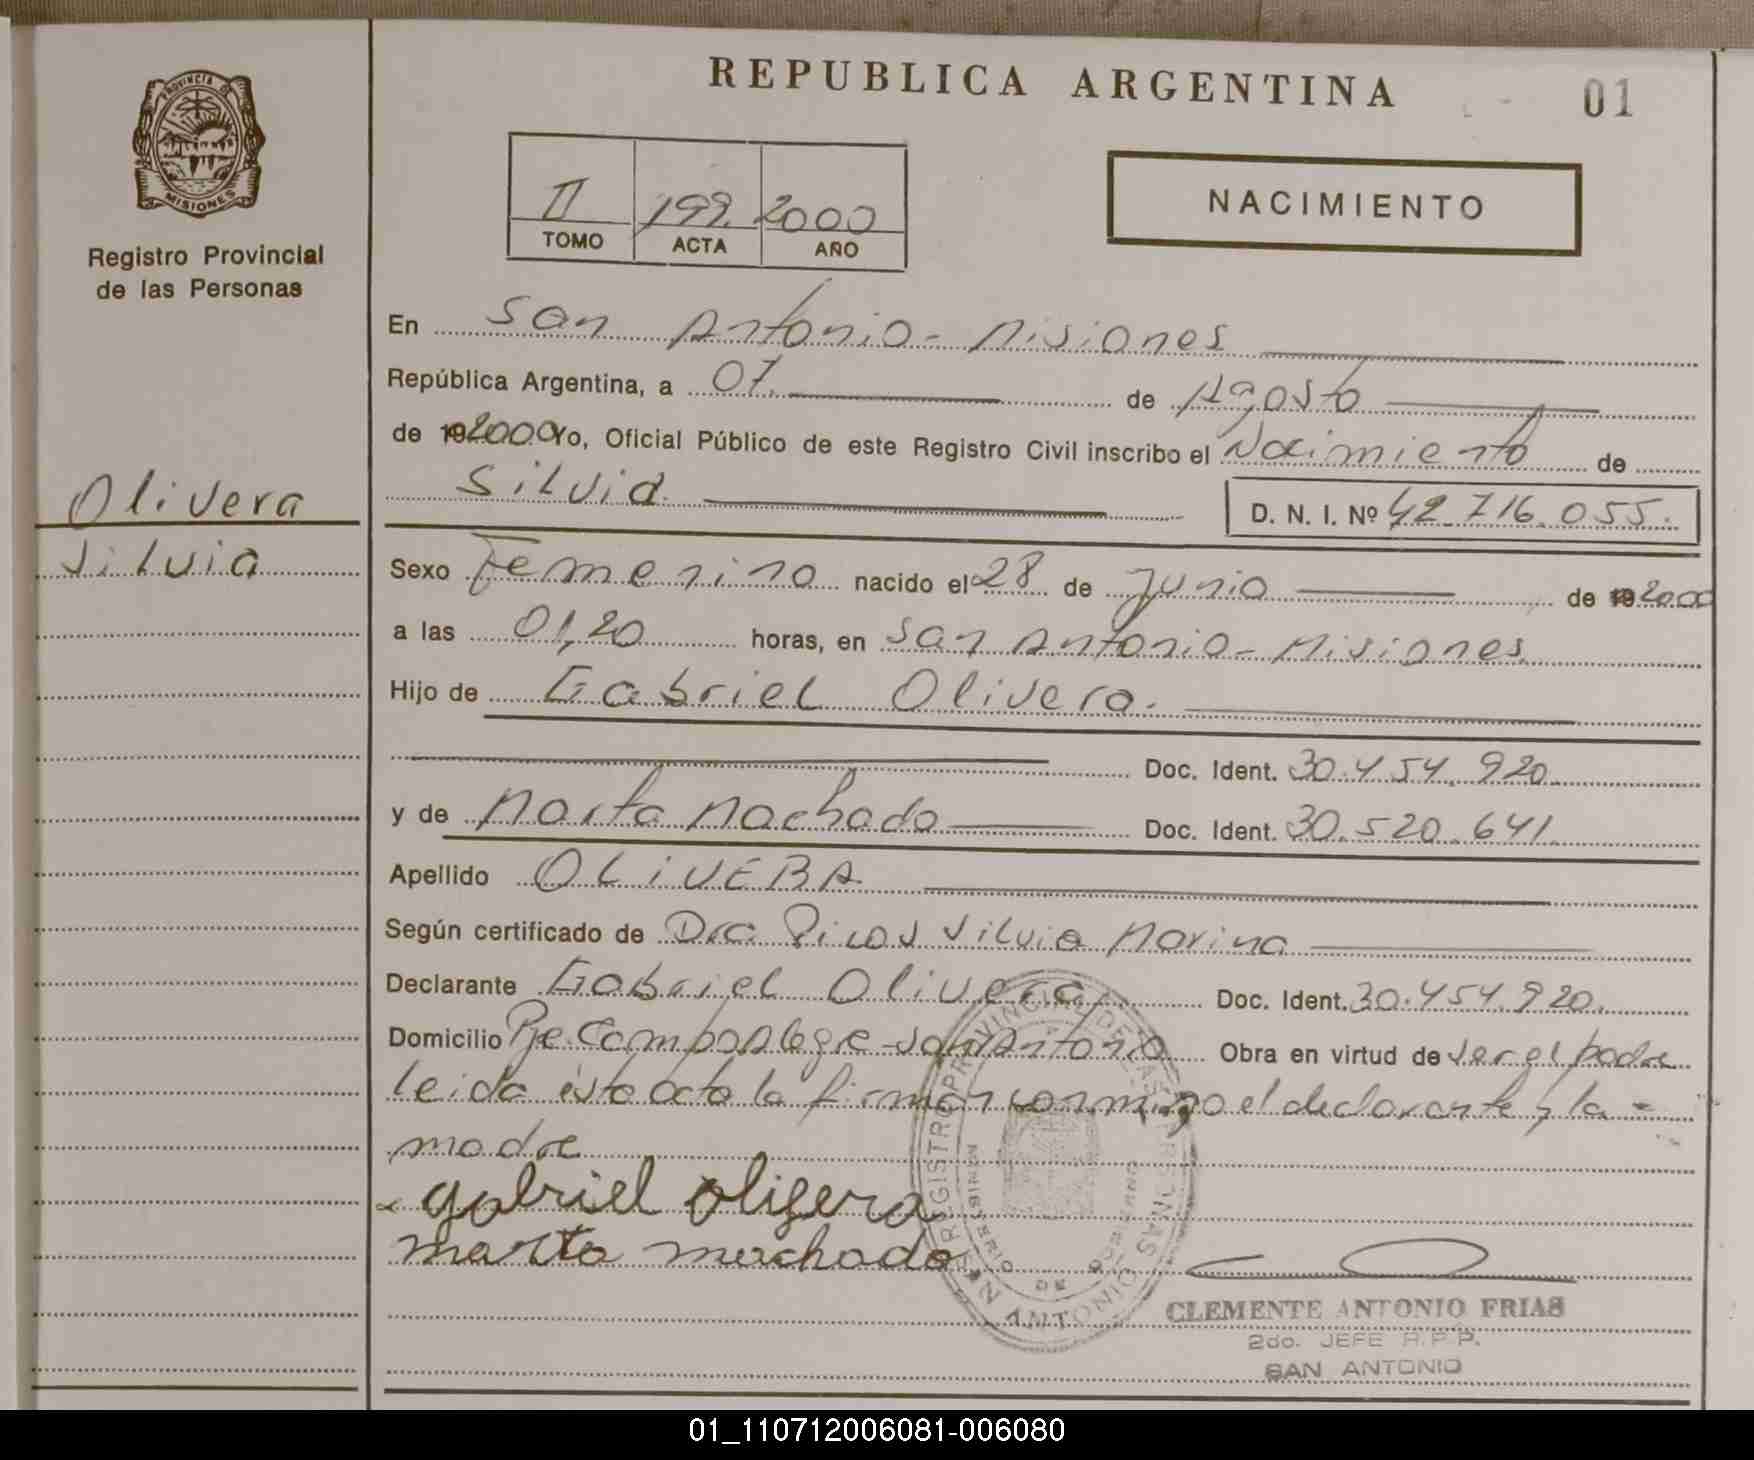 REPUBLICA ARGENTINA
01
PROVINCIA DE
MISIONES
Registro Provincial
de las Personas
II 199. 2000
TOMO ACTA AÑO
NACIMIENTO
En San Antonio - Misiones
República Argentina, a 07. de Agosto
de 192000 Yo, Oficial Público de este Registro Civil inscribo el Nacimiento de
Silvia. D. N. I. Nº 42.716.055.
Olivera
Silvia
Sexo Femenino nacido el 28 de Junio de 192000
a las 01,20 horas, en San Antonio - Misiones.
Hijo de Gabriel Olivera.
Doc. Ident. 30.454.920.
y de Marta Machado Doc. Ident. 30.520.641.
Apellido OLIVERA
Según certificado de Dra Silvia Marina
Declarante Gabriel Olivera Doc. Ident. 30.454.920.
Domicilio Pje. Campo Alegre - San Antonio Obra en virtud de ser el padre
leida esta acta la firman conmigo el declarante y la -
madre
gabriel olifera
marta machado
REGISTRO PROVINCIAL DE LAS PERSONAS
MINISTERIO DE GOBIERNO
SAN ANTONIO
CLEMENTE ANTONIO FRIAS
2do. JEFE R.P.P.
SAN ANTONIO
01_110712006081-006080